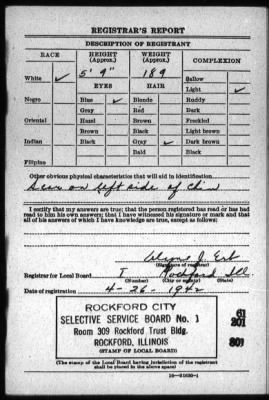 REGISTRAR'S REPORT
DESCRIPTION OF REGISTRANT
RACE HEIGHT (Approx.) WEIGHT (Approx.) COMPLEXION
5' 9" 189
White ✓ Sallow
EYES HAIR Light ✓
Negro Blue ✓ Blonde Ruddy
Gray Red Dark
Oriental Hazel Brown Freckled
Brown Black Light brown
Indian Black Gray ✓ Dark brown
Bald Black
Filipino
Other obvious physical characteristics that will aid in identification
Scar on left side of Chin
I certify that my answers are true; that the person registered has read or has had
read to him his own answers; that I have witnessed his signature or mark and that
all of his answers of which I have knowledge are true, except as follows:
J. Ert
(Signature of registrar)
Registrar for Local Board 1 Rockford Ill
(Number) (City or county) (State)
Date of registration 4-26-1942
ROCKFORD CITY
SELECTIVE SERVICE BOARD No. 1
Room 309 Rockford Trust Bldg.
ROCKFORD, ILLINOIS
(STAMP OF LOCAL BOARD)
201
(The stamp of the Local Board having jurisdiction of the registrant
shall be placed in the above space)